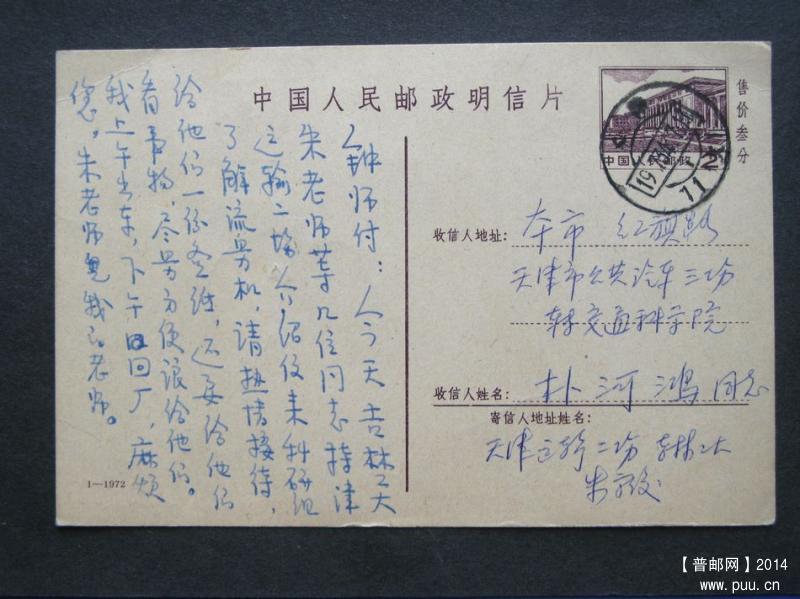 中国人民邮政明信片
售价叁分
中国人民邮政
天津
19
11
收信人地址：
本市 红旗路
天津市公共汽车三场
转交通科学院
收信人姓名：
朴河鸿 同志
寄信人地址姓名：
天津运输二场 吉林工大
朱
钟师付：今天吉林工大
朱老师等几位同志持津
运输二场介绍信来科研组
了解流量机，请热情接待，
给他们一份资料，还要给他们
看事物，尽量方便
给他们。
我上午出车，下午回厂，麻烦
您。朱老师
我的老师。
1—1972
【普邮网】2014
www.puu.cn